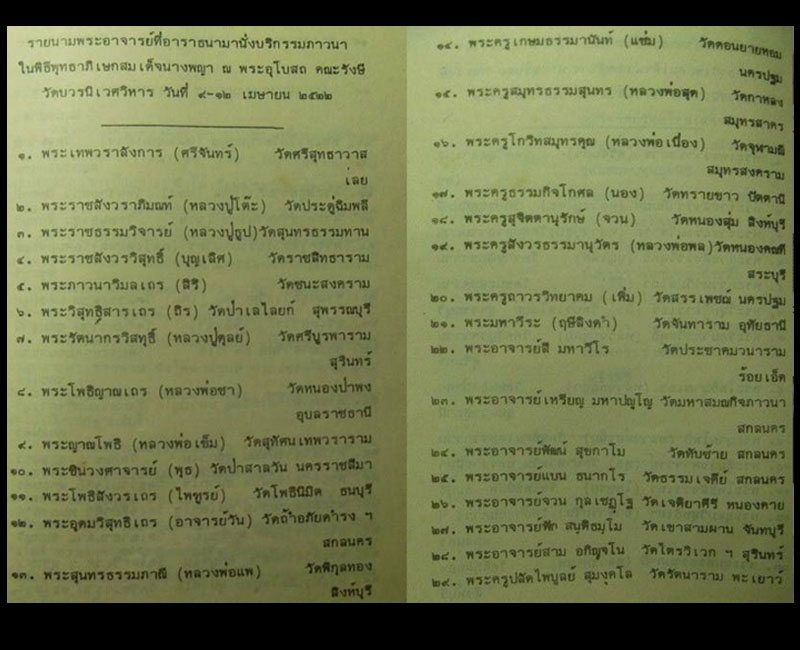 รายนามพระอาจารย์ที่อาราธนามานั่งบริกรรมภาวนา
ในพิธีพุทธาภิเษกสมเด็จนางพญา ณ พระอุโบสถ คณะรังษี
วัดบวรนิเวศวิหาร วันที่ ๙-๑๒ เมษายน ๒๕๒๒
๑. พระเทพวราลังการ (ศรีจันทร์) วัดศรีสุทธาวาส
เลย
๒. พระราชสังวราภิมณฑ์ (หลวงปู่โต๊ะ) วัดประดู่ฉิมพลี
๓. พระราชธรรมวิจารย์ (หลวงปู่ธูป) วัดสุนทรธรรมทาน
๔. พระราชสังวรวิสุทธิ์ (บุญเลิศ) วัดราชสิทธาราม
๕. พระภาวนาวิมลเถร (สิริ) วัดชนะสงคราม
๖. พระวิสุทธิสารเถร (ถิร) วัดป่าเลไลยก์ สุพรรณบุรี
๗. พระรัตนากรวิสุทธิ์ (หลวงปู่ดุลย์) วัดศรีบูรพาราม
สุรินทร์
๘. พระโพธิญาณเถร (หลวงพ่อชา) วัดหนองป่าพง
อุบลราชธานี
๙. พระญาณโพธิ (หลวงพ่อเข็ม) วัดสุทัศนเทพวราราม
๑๐. พระชินวงศาจารย์ (พุธ) วัดป่าสาลวัน นครราชสีมา
๑๑. พระโพธิสังวรเถร (ไพฑูรย์) วัดโพธินิมิต ธนบุรี
๑๒. พระอุดมวิสุทธิเถร (อาจารย์วัน) วัดถ้ำอภัยดำรง ฯ
สกลนคร
๑๓. พระสุนทรธรรมภาณี (หลวงพ่อแพ) วัดพิกุลทอง
สิงห์บุรี
๑๔. พระครูเกษมธรรมานันท์ (แช่ม) วัดดอนยายหอม
นครปฐม
๑๕. พระครูสมุทรธรรมสุนทร (หลวงพ่อสุด) วัดกาหลง
สมุทรสาคร
๑๖. พระครูโกวิทสมุทรคุณ (หลวงพ่อเนื่อง) วัดจุฬามณี
สมุทรสงคราม
๑๗. พระครูธรรมกิจโกศล (นอง) วัดทรายขาว ปัตตานี
๑๘. พระครูสุจิตตานุรักษ์ (จวน) วัดหนองสุ่ม สิงห์บุรี
๑๙. พระครูสังวรธรรมานุวัตร (หลวงพ่อพล) วัดหนองคณฑี
สระบุรี
๒๐. พระครูถาวรวิทยาคม (เพิ่ม) วัดสรรเพชญ์ นครปฐม
๒๑. พระมหาวีระ (ฤษีลิงดำ) วัดจันทาราม อุทัยธานี
๒๒. พระอาจารย์สี มหาวีโร วัดประชาคมวนาราม
ร้อยเอ็ด
๒๓. พระอาจารย์เหรียญ มหาปญฺโญ วัดมหาสมณกิจภาวนา
สกลนคร
๒๔. พระอาจารย์พัฒน์ สุขกาโม วัดทับช้าย สกลนคร
๒๕. พระอาจารย์แบน ธนากโร วัดธรรมเจดีย์ สกลนคร
๒๖. พระอาจารย์จวน กุลเชฏฺโฐ วัดเจติยาคีรี หนองคาย
๒๗. พระอาจารย์ฟัก สนฺติธมฺโม วัดเขาสามผาน จันทบุรี
๒๘. พระอาจารย์สาม อกิญฺจโน วัดไตรวิเวก ฯ สุรินทร์
๒๙. พระครูปลัดไพบูลย์ สุมงฺคโล วัดรัตนาราม พะเยาว์